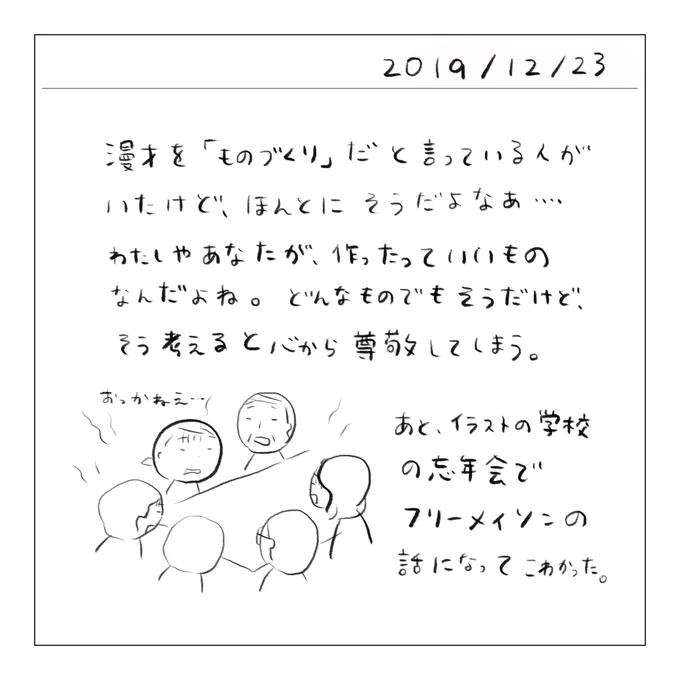 2019/12/23
漫才を「ものづくり」だと言っている人が
いたけど、ほんとにそうだよなあ‥‥
わたしやあなたが、作ったっていいもの
なんだよね。どんなものでもそうだけど、
そう考えると心から尊敬してしまう。
おっかねえ…
あと、イラストの学校
の忘年会で
フリーメイソンの
話になってこわかった。